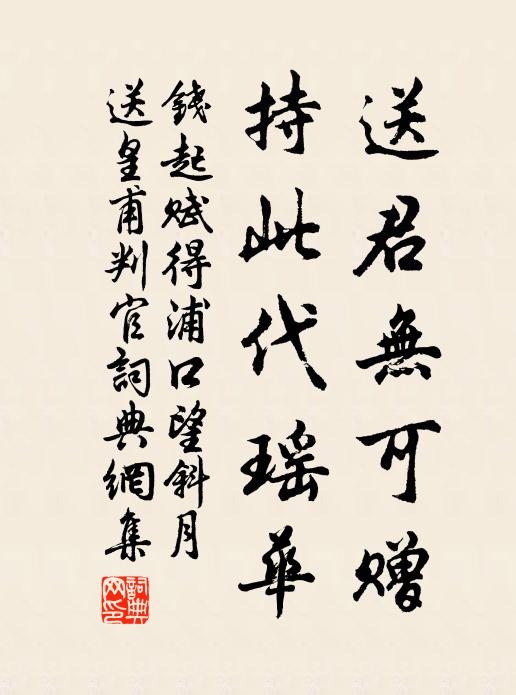 送君無可贈
持此代瑶華
錢起賦得浦口望斜月
送皇甫判官詞典網集
詞典網印